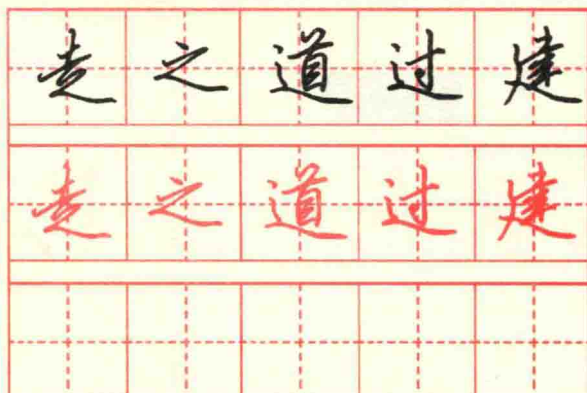 走之道过建
走之道过建